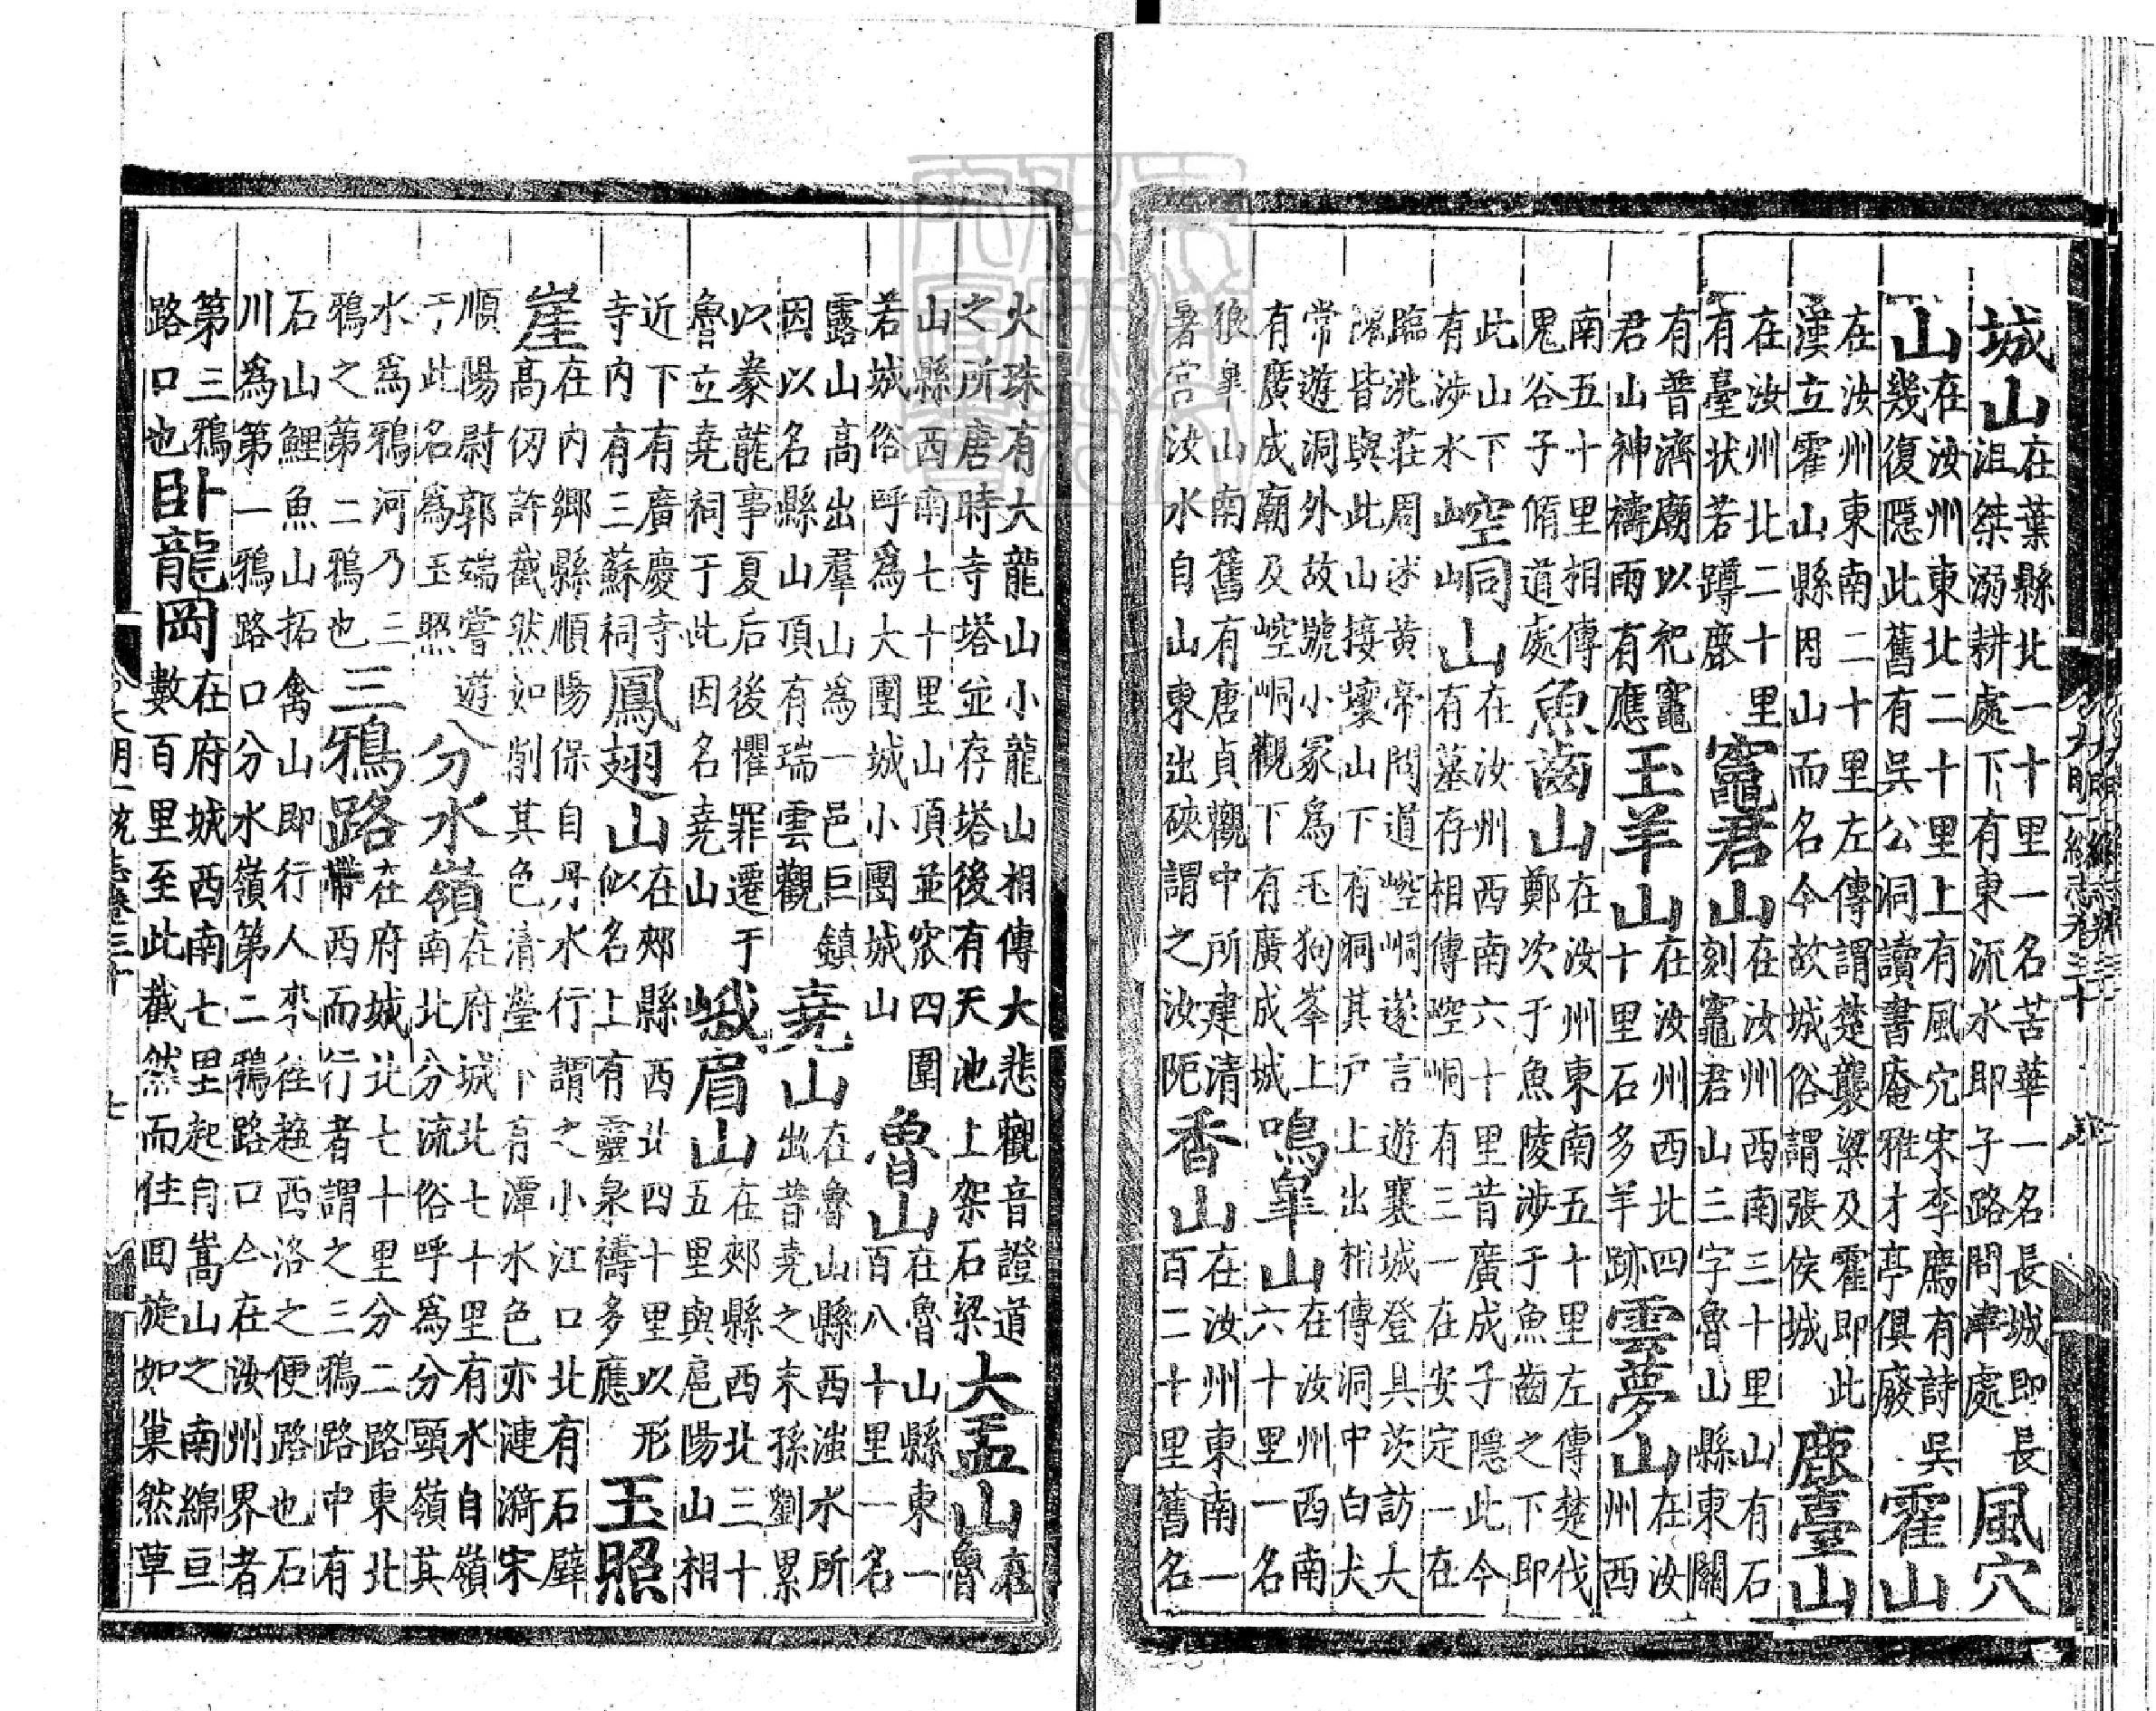 城山在葉縣北一十里一名苦華一名長城即長沮桀溺耕處下有東流水即子路問津處風穴
山在汝州東北二十里上有風穴宋李廌有詩吳幾復隱此舊有吳公洞讀書庵雅才亭俱廢霍山
在汝州東南二十里左傳謂楚襲梁及霍即此漢立霍山縣因山而名今故城俗謂張侯城鹿臺山
在汝州北二十里有臺狀若蹲鹿竈君山在汝州西南三十里山有石刻竈君山三字魯山縣東關
有普濟廟以祀竈君山神禱雨有應玉羊山在汝州西北四十里石多羊跡雲夢山在汝州西
南五十里相傳鬼谷子脩道處魚齒山在汝州東南五十里左傳楚伐鄭次于魚陵涉于魚齒之下即
此山下有涉水崆峒山在汝州西南六十里昔廣成子隱此今有墓存相傳崆峒有三一在安定一在
臨洮莊周述黃帝問道崆峒遂言遊襄城登具茨訪大隗皆與此山接壤山下有洞其戸上出相傳洞中白犬
常遊洞外故號小冢為玉狗峯上有廣成廟及崆峒觀下有廣成城鳴臯山在汝州西南六十里一名
狼臯山南舊有唐貞觀中所建清暑宮汝水自山東出硤謂之汝阨香山在汝州東南一百二十里舊名
火珠有大龍山小龍山相傳大悲觀音證道之所唐時寺塔並存塔後有天池上架石梁大盂山在魯
山縣西南七十里山頂並窊四圍若城俗呼為大團城小團城山魯山在魯山縣東一百八十里一名
露山高出羣山為一邑巨鎮因以名縣山頂有瑞雲觀堯山在魯山縣西滍水所出昔堯之末孫劉累
以豢龍事夏后後懼罪遷于魯立堯祠于此因名堯山峨眉山在郟縣西北三十五里與扈陽山相
近下有廣慶寺寺內有三蘇祠鳳翅山在郟縣西北四十里以形似名上有靈泉禱多應玉照
崖在内鄉縣順陽保自丹水行謂之小江口北有石壁高仞許截然如削其色清瑩下有潭水色亦漣漪宋
順陽尉郭端嘗遊于此名為玉照分水嶺在府城北七十里有水自嶺南北分流俗呼為分頭嶺其
水為鴉河乃三鴉之第二鴉也三鴉路在府城北七十里分二路東北帶西而行者謂之三鴉路中有
石山鯉魚山拓禽山即行人來往趨西洛之便路也石川為第一鴉路口分水嶺第二鴉路口仝在汝州界者
第三鴉路口也臥龍岡在府城西南七里起自嵩山之南綿亘數百里至此截然而住回旋如巢然草
大明一統志卷三十
七